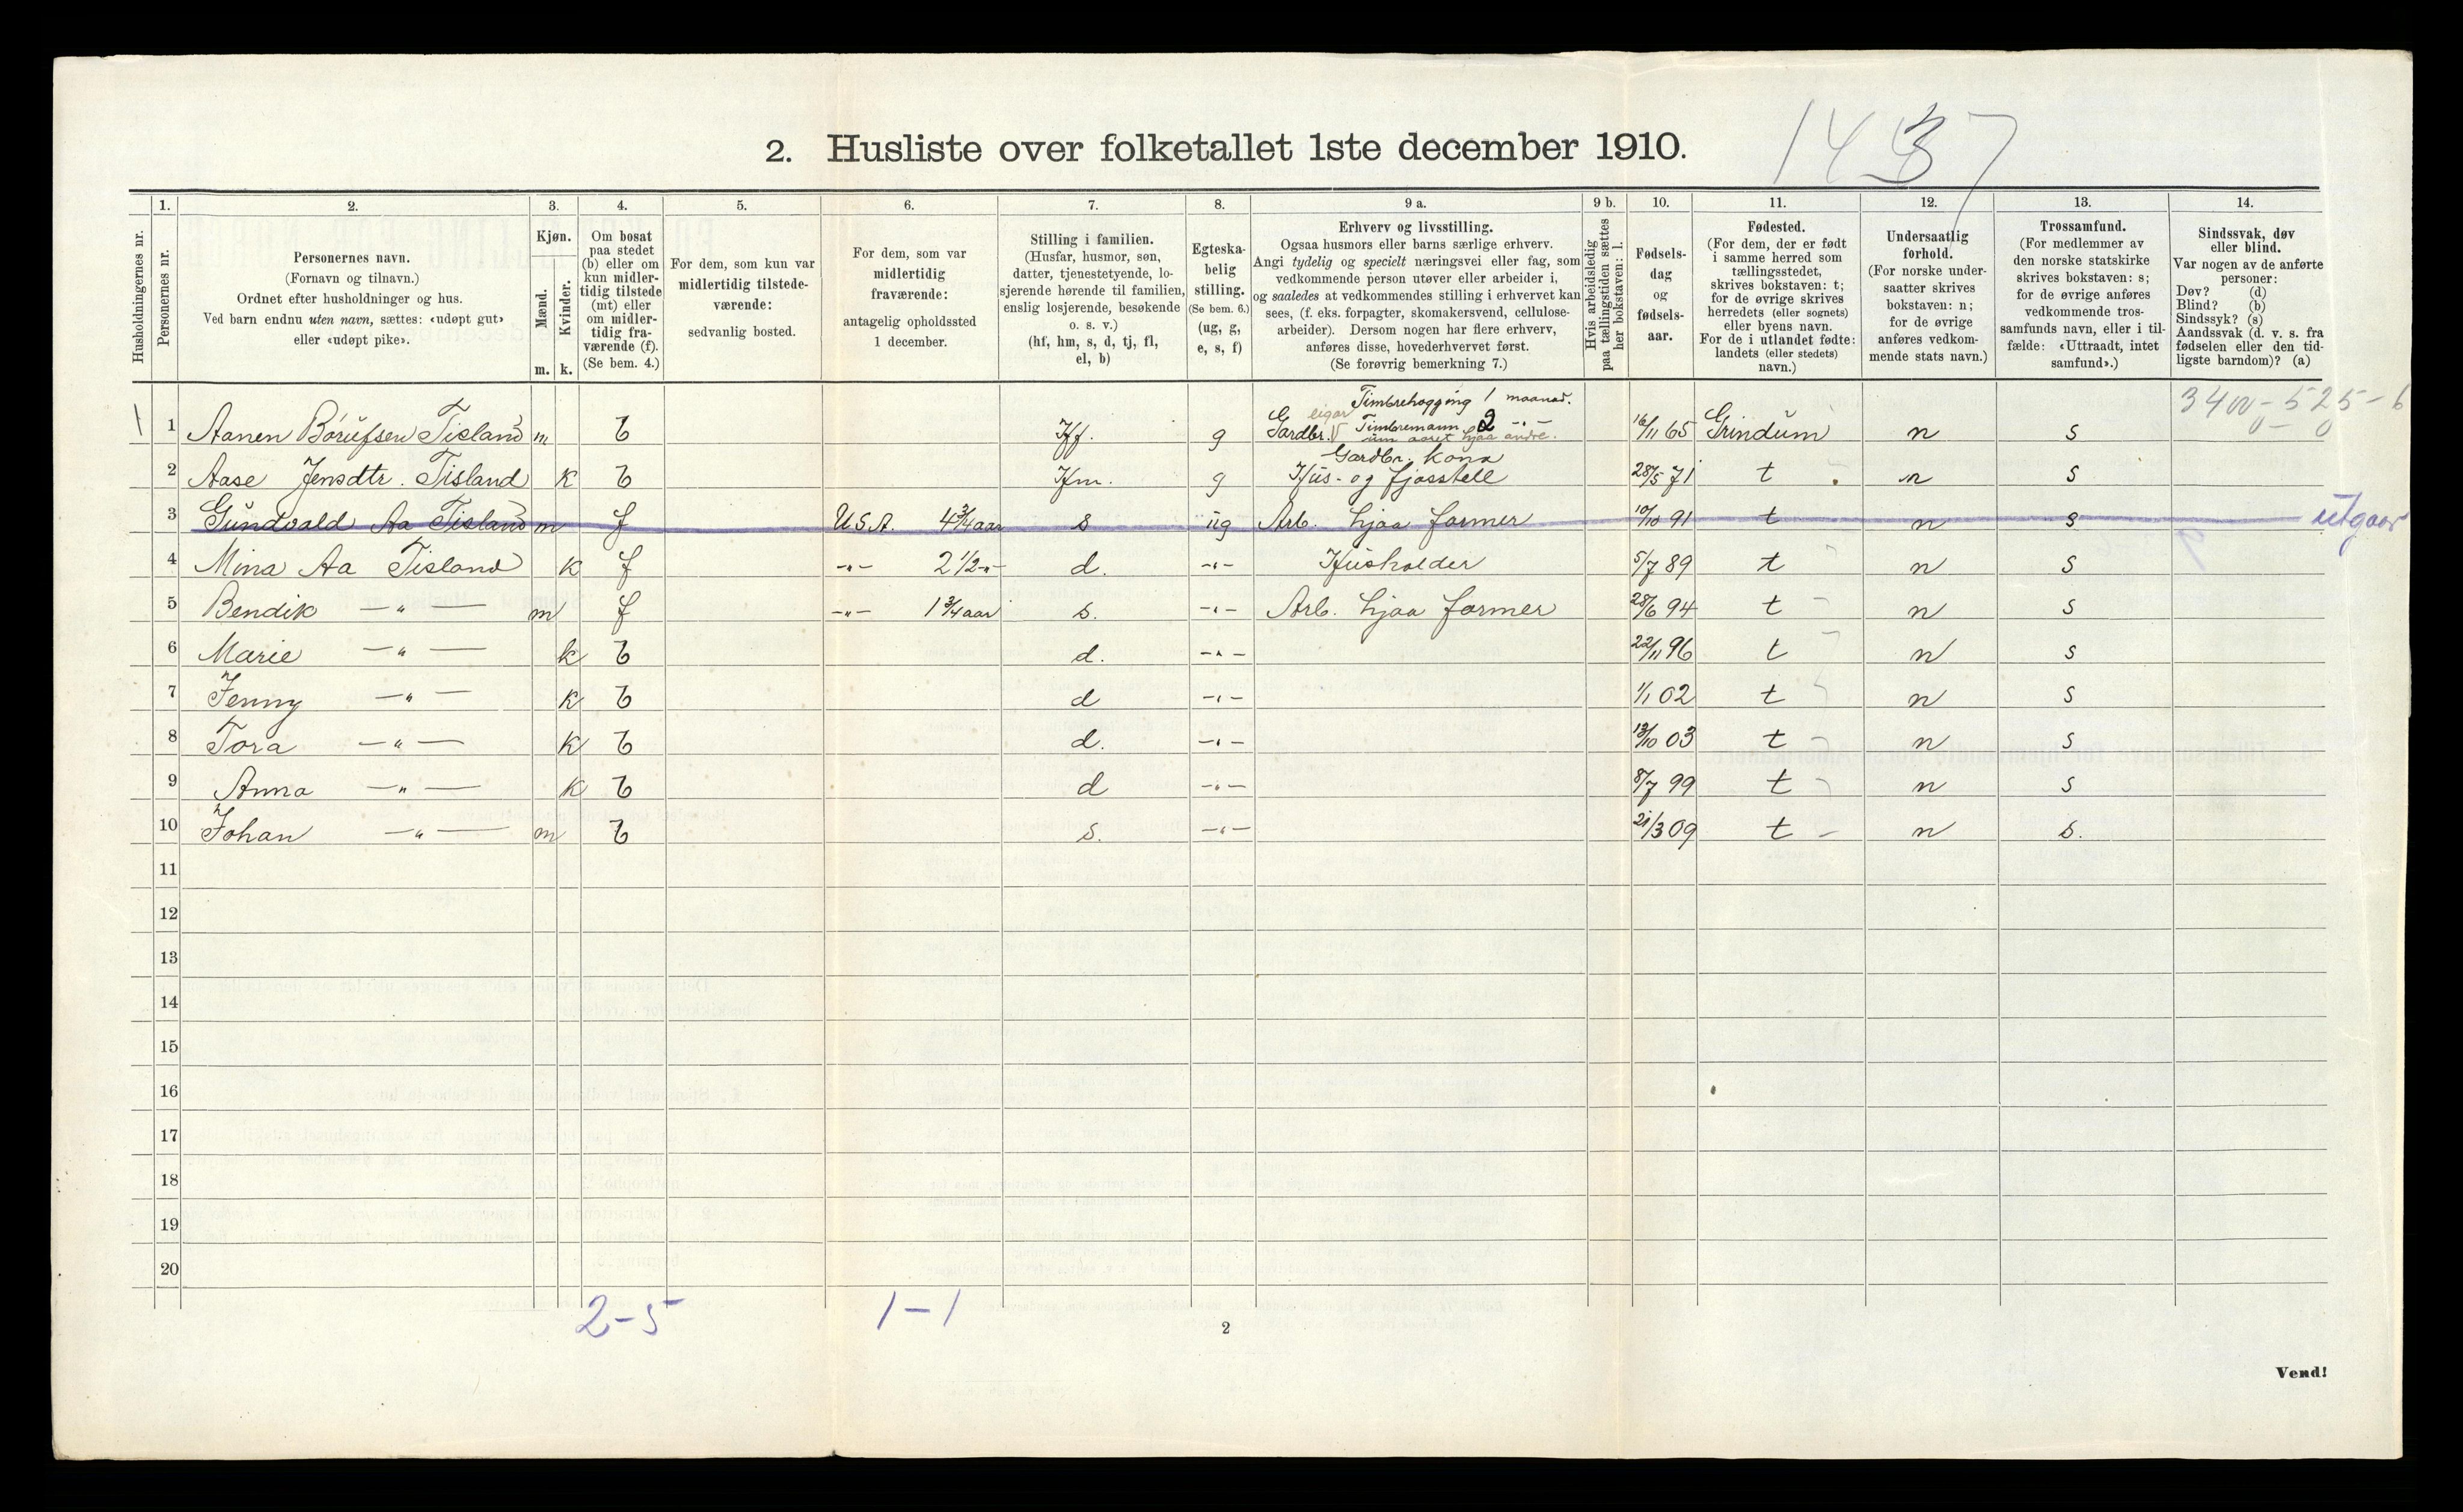 1437
2. Husliste over folketallet 1ste december 1910.
1. 2. 3. 4. 5. 6. 7. 8. 9 a. 9 b. 10. 11. 12. 13. 14.
Husholdningernes nr.
Personernes nr.
Personernes navn.
(Fornavn og tilnavn.)
Ordnet efter husholdninger og hus.
Ved barn endnu uten navn, sættes: «udøpt gut»
eller «udøpt pike».
Kjøn.
Mænd.
Kvinder.
m. k.
Om bosat
paa stedet
(b) eller om
kun midler-
tidig tilstede
(mt) eller
om midler-
tidig fra-
værende (f).
(Se bem. 4.)
For dem, som kun var
midlertidig tilstede-
værende:
sedvanlig bosted.
For dem, som var
midlertidig
fraværende:
antagelig opholdssted
1 december.
Stilling i familien.
(Husfar, husmor, søn,
datter, tjenestetyende, lo-
sjerende hørende til familien,
enslig losjerende, besøkende
o. s. v.)
(hf, hm, s, d, tj, fl,
el, b)
Egteska-
belig
stilling.
(Se bem. 6.)
(ug, g,
e, s, f)
Erhverv og livsstilling.
Ogsaa husmors eller barns særlige erhverv.
Angi tydelig og specielt næringsvei eller fag, som
vedkommende person utøver eller arbeider i,
og saaledes at vedkommendes stilling i erhvervet kan
sees, (f. eks. forpagter, skomakersvend, cellulose-
arbeider). Dersom nogen har flere erhverv,
anføres disse, hovederhvervet først.
(Se forøvrig bemerkning 7.)
Hvis arbeidsledig
paa tællingstiden sættes
her bokstaven: l.
Fødsels-
dag
og
fødsels-
aar.
Fødested.
(For dem, der er født
i samme herred som
tællingsstedet,
skrives bokstaven: t;
for de øvrige skrives
herredets (eller sognets)
eller byens navn.
For de i utlandet fødte:
landets (eller stedets)
navn.)
Undersaatlig
forhold.
(For norske under-
saatter skrives
bokstaven: n;
for de øvrige
anføres vedkom-
mende stats navn.)
Trossamfund.
(For medlemmer av
den norske statskirke
skrives bokstaven: s;
for de øvrige anføres
vedkommende tros-
samfunds navn, eller i til-
fælde: «Uttraadt, intet
samfund».)
Sindssvak, døv
eller blind.
Var nogen av de anførte
personer:
Døv? (d)
Blind? (b)
Sindssyk? (s)
Aandssvak (d. v. s. fra
fødselen eller den tid-
ligste barndom)? (a)
Timbrehogging 1 maanad.
1 1 Aanen Børufsen Tisland m b Hf. g Gardbr. eigar Timbremann 2 -"- 16/11 65 Grindum n s
um aaret hjaa andre.
Gardbr. kona
2 Aase Jensdtr. Tisland k b Hm. g Hus- og fjosstell 28/5 71 t n s
3 Gundvald Aa Tisland m f U.S.A. 4 3/4 aar s ug Arb. hjaa farmer 10/10 91 t n s utgaar
4 Mina Aa Tisland k f -"- 2 1/2 -"- d. -"- Husholder 5/7 89 t n s
5 Bendik -"- m f -"- 1 3/4 aar s. -"- Arb. hjaa farmer 28/6 94 t n s
6 Marie -"- k b d. -"- 22/11 96 t n s
7 Jenny -"- k b d -"- 1/1 02 t n s
8 Tora -"- k b d. -"- 13/10 03 t n s
9 Anna -"- k b d -"- 8/7 99 t n s
10 Johan -"- m b s. -"- 21/3 09 t n s.
11
12
13
14
15
16
17
18
19
20
2-5 1-1
2
Vend!